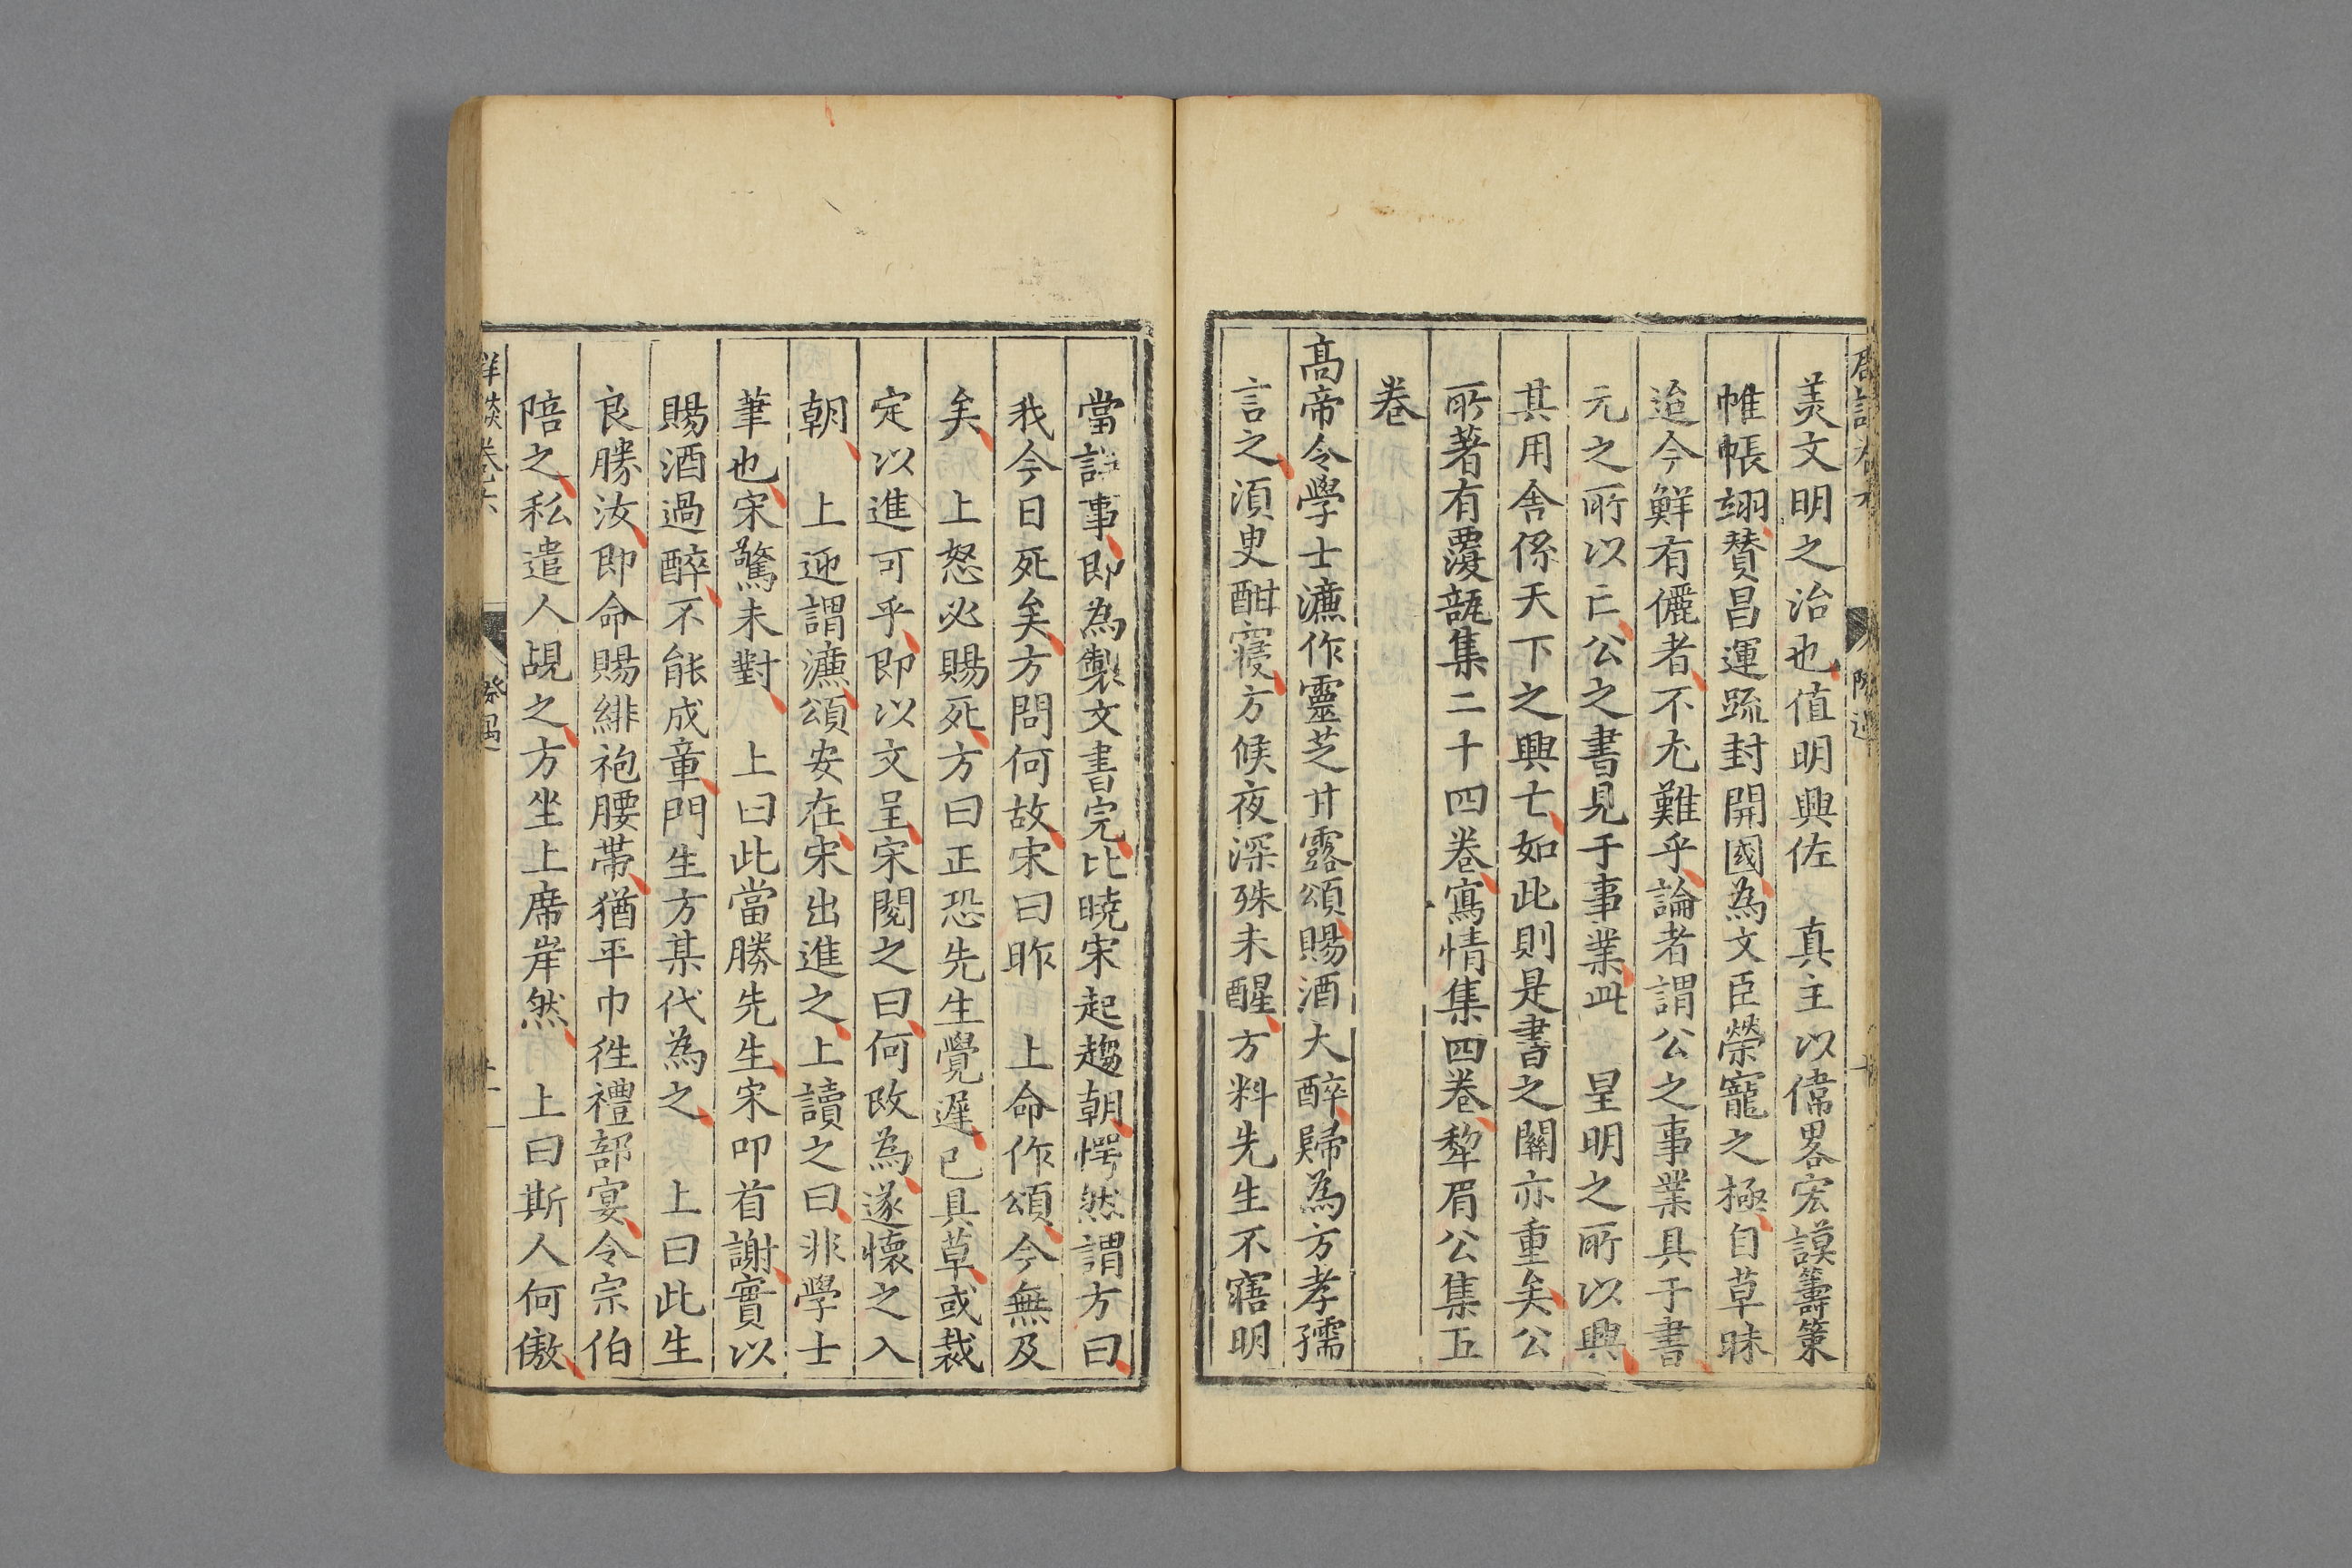 美文明之治也值明興佐　真主以偉畧宏謨籌策
帷帳翊賛昌運䟽封開國為文臣榮寵之極自草昧
迨今鮮有儷者不尤難乎論者謂公之事業具于書
元之所以亡公之書見于事業此　皇明之所以興
其用舎係天下之興亡如此則是書之關亦重矣公
所著有覆瓿集二十四卷寫情集四卷犂眉公集五
卷
髙帝令學士濂作靈芝甘露頌賜酒大醉歸為方孝孺
言之湏臾酣寢方候夜深殊未醒方料先生不寤明
當誤事即為製文書完比曉宋起趨朝愕然謂方曰
我今日死矣方問何故宋曰昨　上命作頌今無及
矣　上怒必賜死方曰正恐先生覺遲已具草或裁
定以進可乎即以文呈宋閱之曰何改為遂懷之入
朝　上迎謂濂頌安在宋出進之上讀之曰非學士
筆也宋驚未對　上曰此當勝先生宋叩首謝實以
賜酒過醉不能成章門生方某代為之　上曰此生
良勝汝即命賜緋袍腰帶猶平巾徃禮部宴令宗伯
陪之私遣人覘之方坐上席岸然　上曰斯人何傲